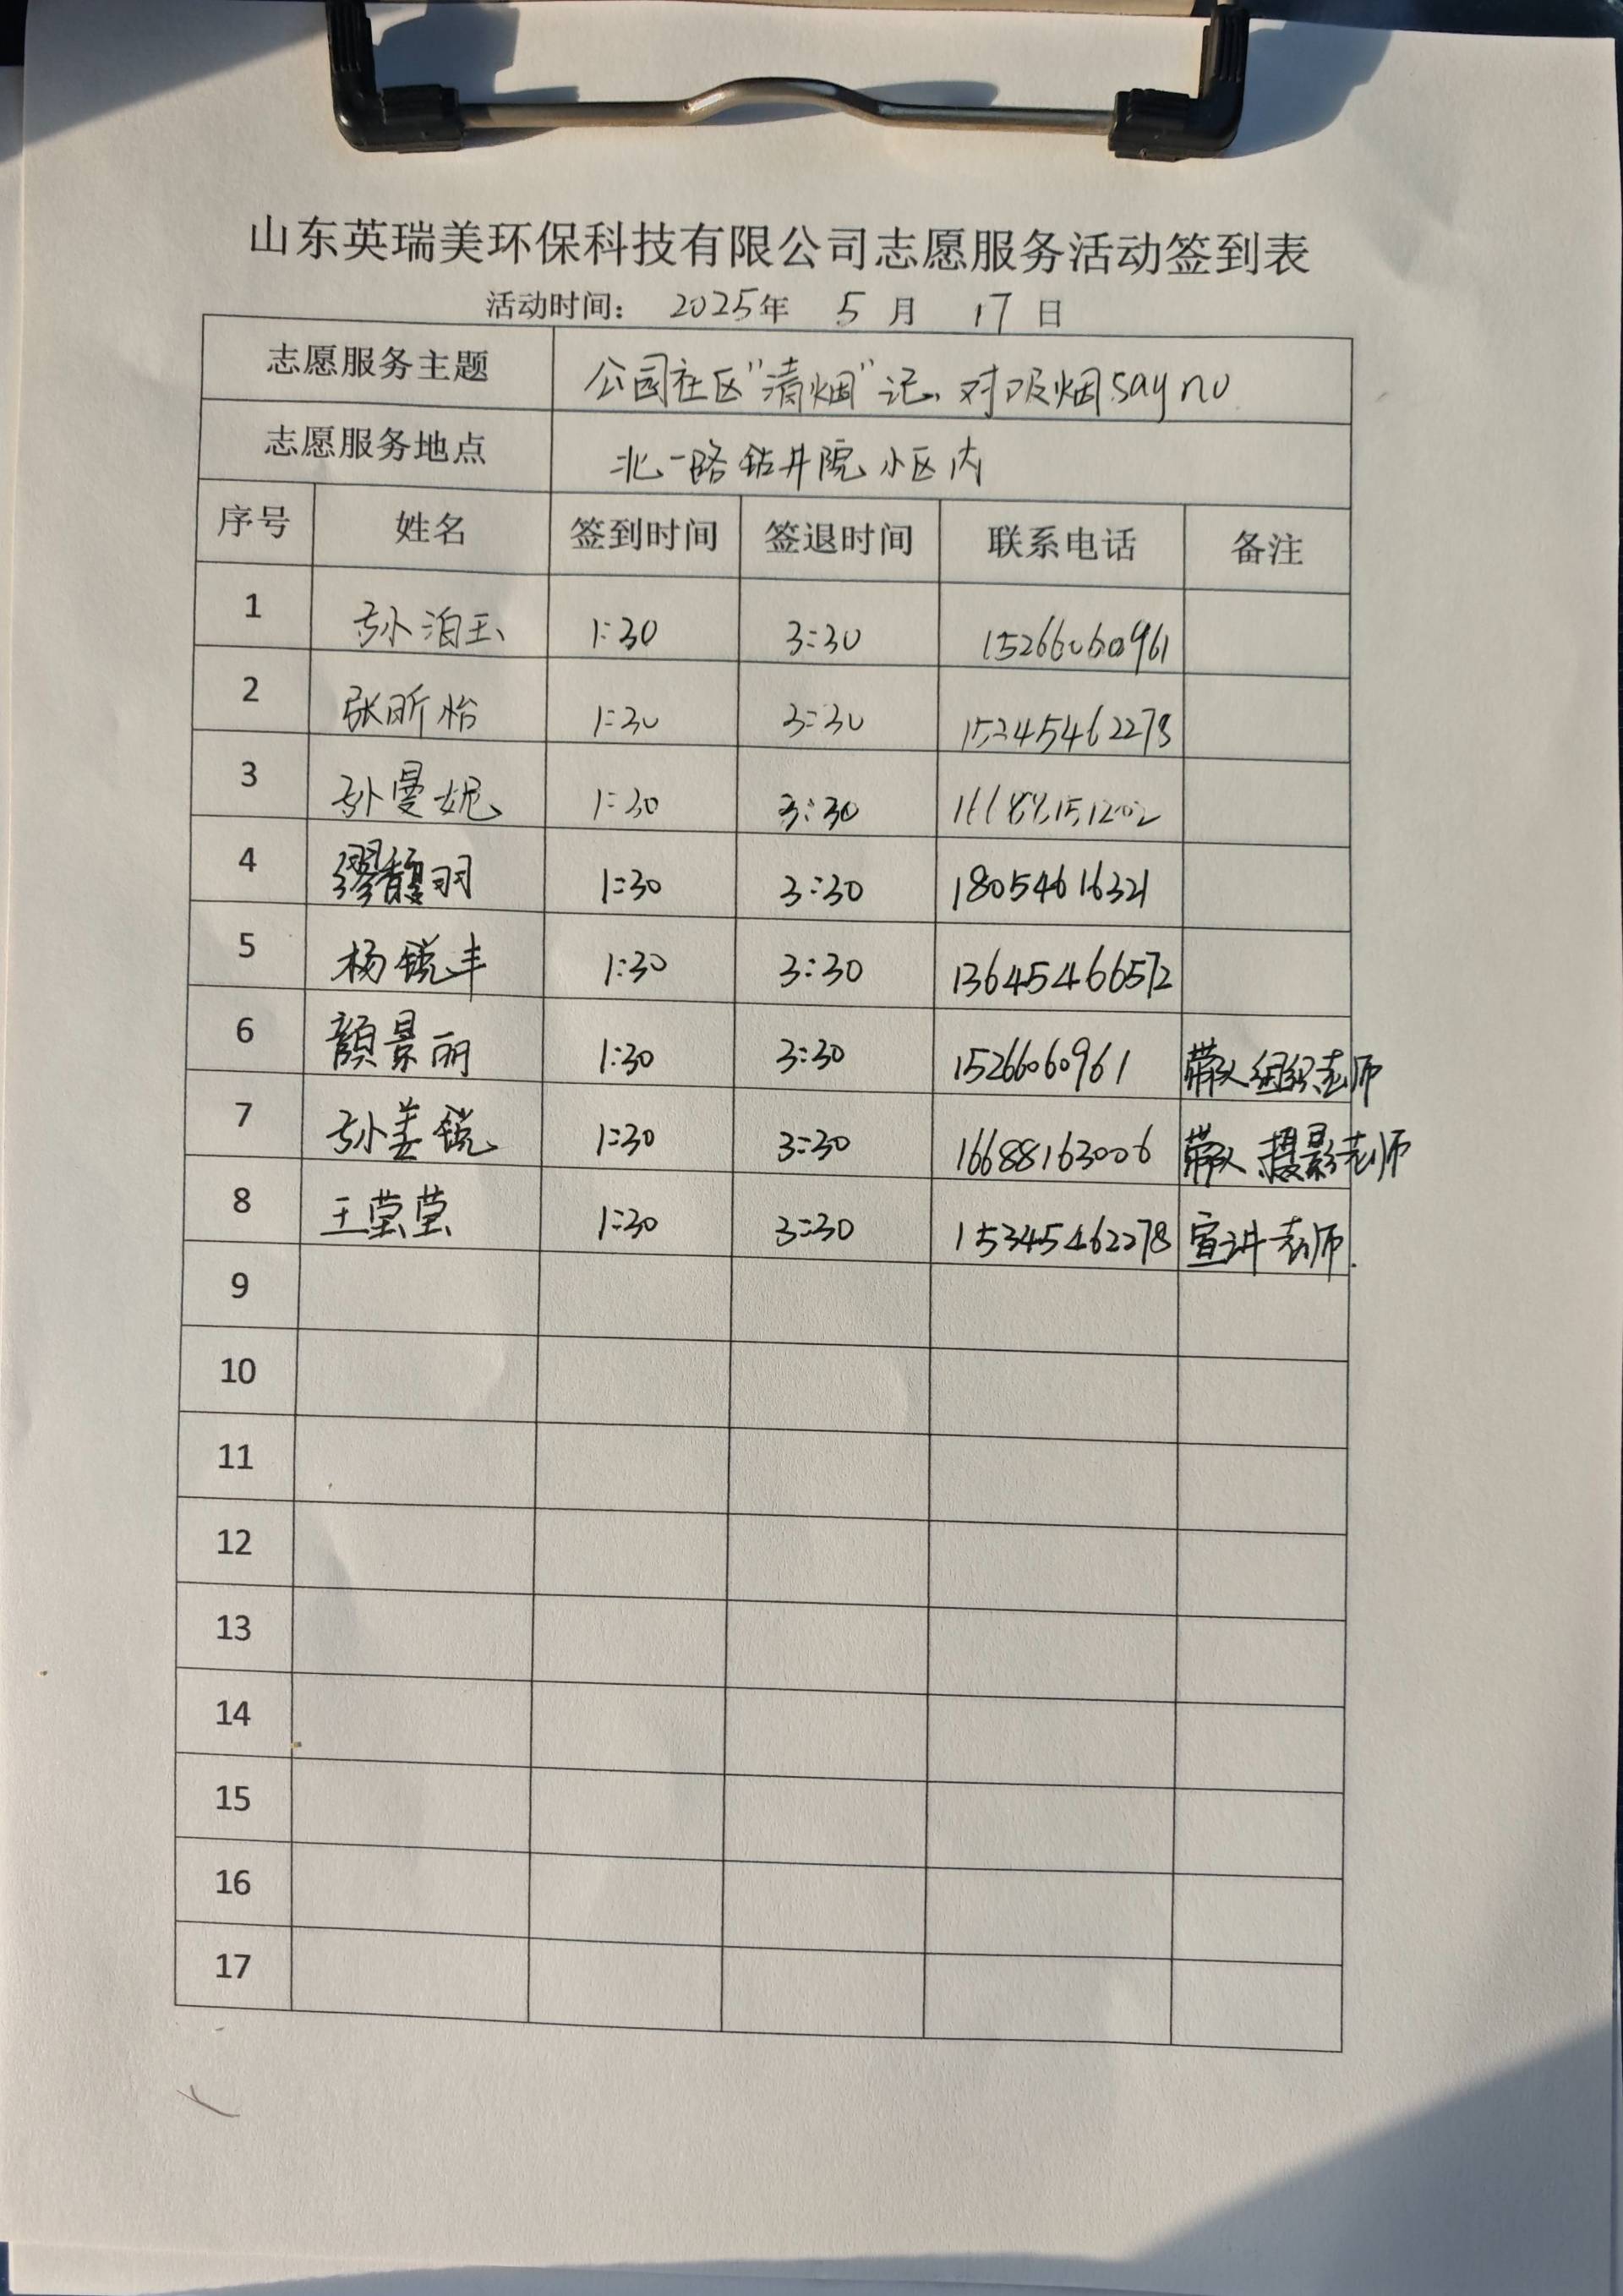 山东英瑞美环保科技有限公司志愿服务活动签到表
活动时间： 2025年 5 月 17 日
志愿服务主题 公园社区"清烟"记，对吸烟say no
志愿服务地点 北一路钻井院小区内
序号 姓名 签到时间 签退时间 联系电话 备注
1 孙泊玉 1:30 3:30 15266060961
2 张昕怡 1:30 3:30 15345462278
3 孙曼妮 1:30 3:30
4 缪馥羽 1:30 3:30 18054616321
5 杨锐丰 1:30 3:30 13645466572
6 颜景丽 1:30 3:30 15266060961 带队组织老师
7 孙姜锐 1:30 3:30 16688163006 带队 摄影老师
8 王莹莹 1:30 3:30 15345462278 宣讲老师.
9
10
11
12
13
14
15
16
17